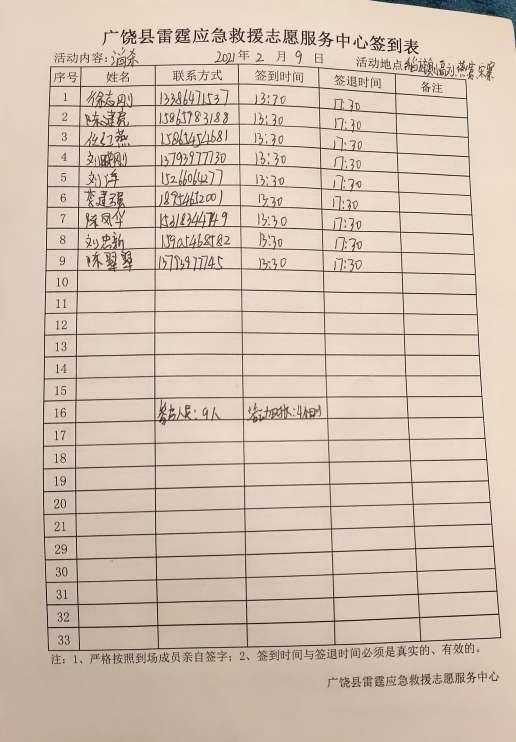 广饶县雷霆应急救援志愿服务中心签到表
活动内容:消杀 2021年2月9日 活动地点
序号 姓名 联系方式 签到时间 签退时间 备注
1 徐志刚 13386471537 13:30 17:30
2 陈建虎 15865983188 13:30 17:30
3 任红燕 15865454681 13:30 17:30
4 刘 刚 13793977730 13:30 17:30
5 刘洋 15266064277 13:30 17:30
6 建强 18954652001 13:30 17:30
7 陈凤华 15318344749 13:30 17:30
8 刘忠新 15905468582 13:30 17:30
9 陈翠翠 13793977745 13:30 17:30
10
11
12
13
14
15
16 参与人员:9人 活动时长:4小时
17
18
19
20
21
29
30
31
32
33
注:1、严格按照到场成员亲自签字;2、签到时间与签退时间必须是真实的、有效的。
广饶县雷霆应急救援志愿服务中心